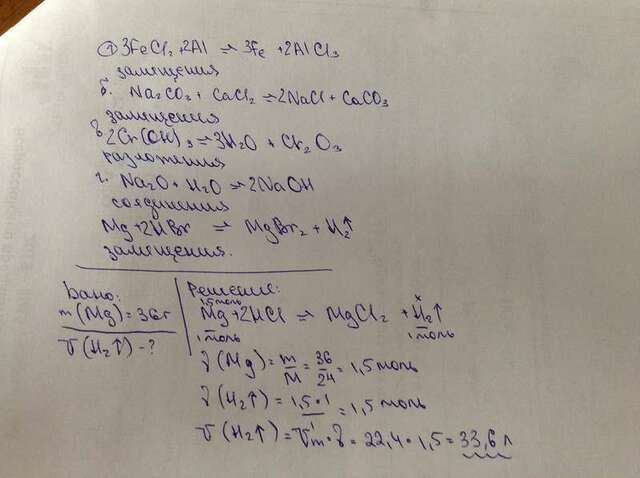 ① 3FeCl₂+2Al ⇌ 3Fe +2AlCl₃
замящения
б. Na₂CO₂ + CaCl₂ ⇌ 2NaCl + CaCO₃
замящения
в. 2Cr(OH)₃ ⇌ 3H₂O + Cr₂O₃
разложения
г. Na₂O + H₂O ⇌ 2NaOH
соединения
Mg+2HBr ⇌ MgBr₂ + H₂↑
замящения.
Дано:
m(Mg)=36г
V(H₂↑)-?
Решение:
1,5моль x
Mg+2HCl ⇌ MgCl₂ +H₂↑
1моль 1моль
ν(Mg)=m/M=36/24=1,5моль
ν(H₂↑)=1,5·1/1=1,5моль
V(H₂↑)=Vm·ν=22,4·1,5=33,6л